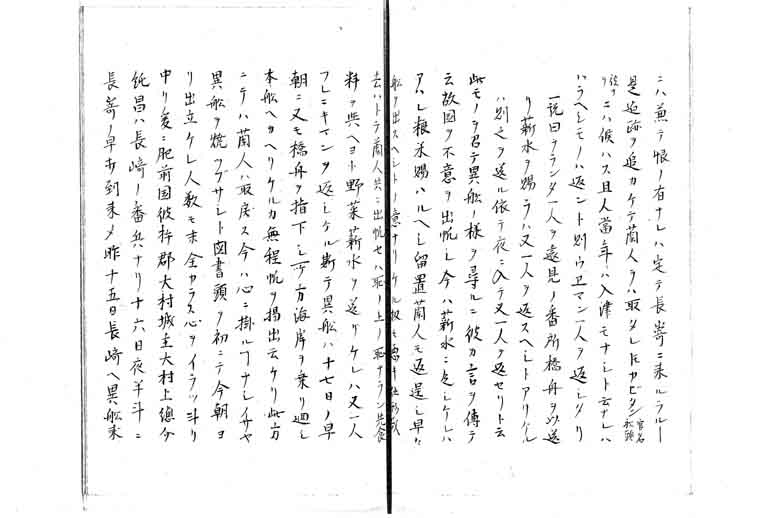 ニハ兼テ恨ノ有ナレハ定テ長嵜ニ来ルラルー
是追跡ヲ追カケテ蘭人ヲハ取タレ𪜈カビタン官名船頭
ニハ候ハス且人當年ハ入津モナシト云ナレハ
ハラヘシモノハ返ント則ウヱマン一人ヲ返シタリ
一説曰ヲランダ一人ヲ遠見ノ番所橋舟ヲ以送
リ薪水ヲ賜ラハ又一人ヲ返スヘシトアリケレ
ハ則之ヲ送ル依テ夜ニ入テ又一人ヲ返セリト云
此モノヲ召テ異舩ノ様ヲ尋ルニ彼カ言ヲ傳テ
云故国ヲ不意ヲ出帆シ今ハ薪水ニ乏シケレハ
アハレ粮米賜ハルヘシ留置蘭人モ返逞シ早々
舩ヲ出スヘシトノ意ナリケル
去ハトテ蘭人共ニ出帆セハ恥ノ上ノ恥ナラン先食
料ヲ與ヘヨト野菜薪水ヲ送リケレハ又一人
フレニキマンヲ返シケル斯テ異舩ハ十七日ノ早
朝ニ又モ橋舟ヲ指下シ所方海岸ヲ乗リ廻シ
本舩ヘカヘリケルカ無程帆ヲ揚出云ケリ此方
ニテハ蘭人ハ取戻ス今ハ心ニ掛ルヿナシイサヤ
異舩ヲ焼ツブサレト図書頭ヲ初ニテ今朝ヨ
リ出立ケレ人数モ未全カラス心ヲイラツ斗リ
中リ爰ニ肥前国彼杵郡大村城主大村上總介
純昌ハ長﨑ノ番兵ナリ十六日夜半斗ニ
長嵜ノ早打到来メ昨十五日長﨑ヘ異舩来